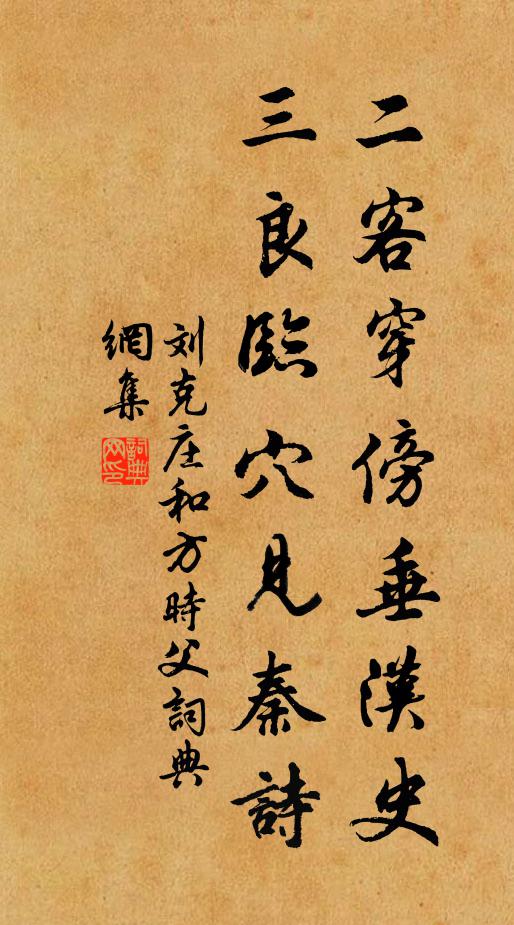 二客穿傍垂漢史
三良臨穴見秦詩
刘克庄和方時父詞典
網集
詞典
网印